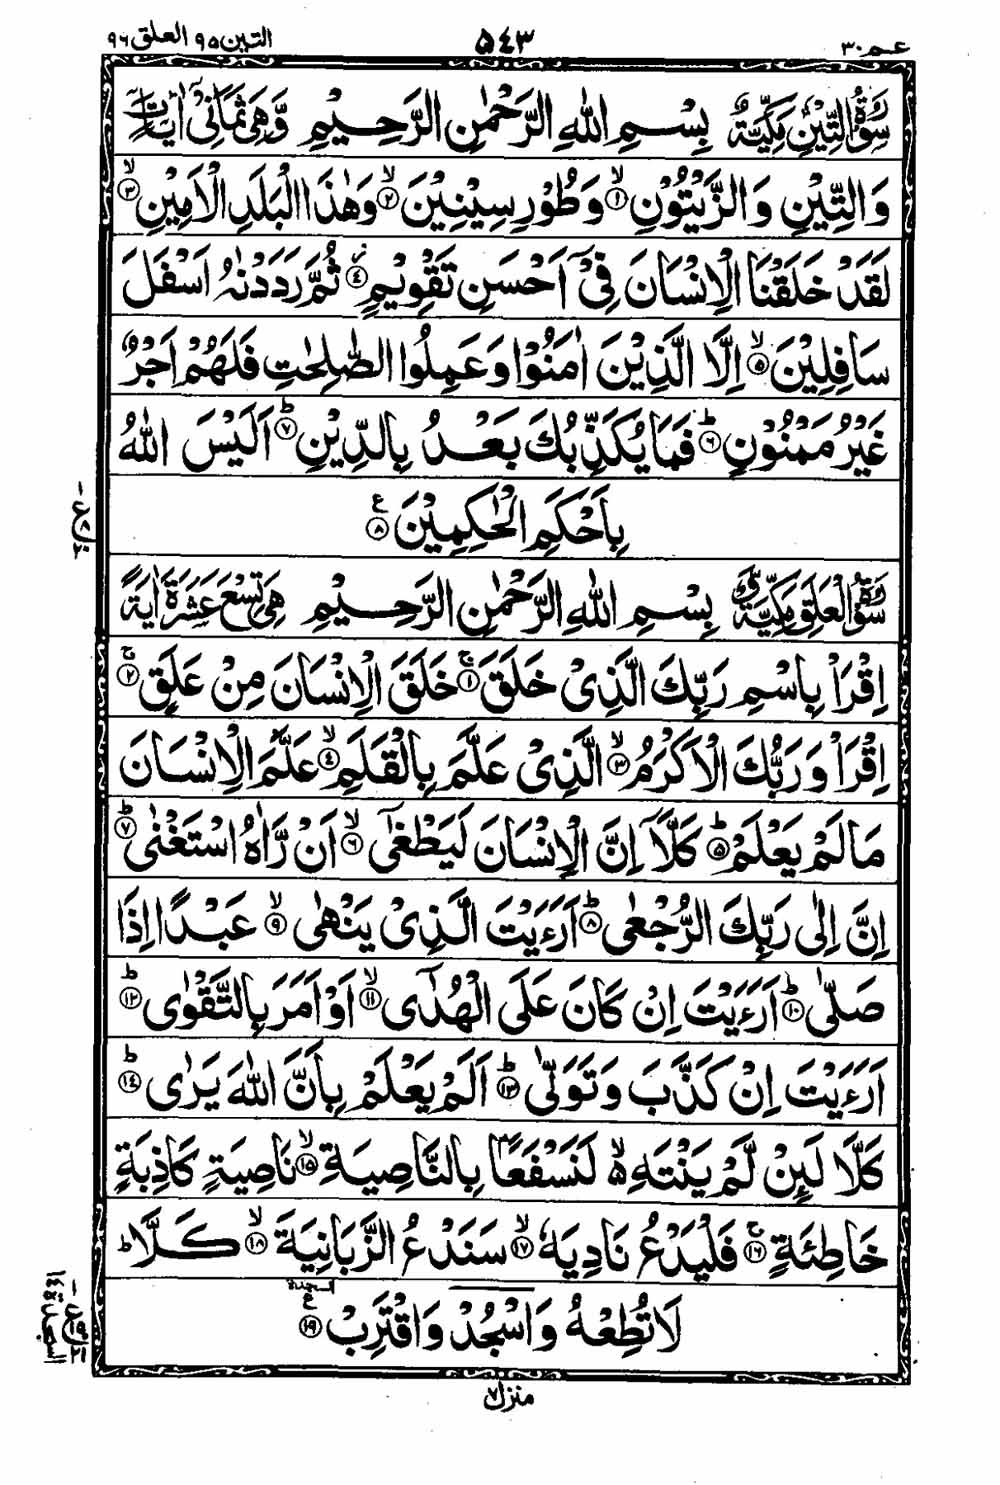 عـم ٣٠ ۵٤٣ التين ٩۵ العلق ٩٦
سُوْرَةُ التِّيْنِ مَكِّيَّةٌ بِسْمِ اللّٰهِ الرَّحْمٰنِ الرَّحِيْمِ وَّهِيَ ثَمَانِيْ اٰيَاتٍ
وَالتِّيْنِ وَالزَّيْتُوْنِ ۙ﴿١﴾ وَطُوْرِ سِيْنِيْنَ ۙ﴿٢﴾ وَهٰذَا الْبَلَدِ الْاَمِيْنِ ۙ﴿٣﴾
لَقَدْ خَلَقْنَا الْاِنْسَانَ فِيْٓ اَحْسَنِ تَقْوِيْمٍ ﴿٤﴾ ثُمَّ رَدَدْنٰهُ اَسْفَلَ
سَافِلِيْنَ ۙ﴿۵﴾ اِلَّا الَّذِيْنَ اٰمَنُوْا وَعَمِلُوا الصّٰلِحٰتِ فَلَهُمْ اَجْرٌ
غَيْرُ مَمْنُوْنٍ ؕ﴿٦﴾ فَمَا يُكَذِّبُكَ بَعْدُ بِالدِّيْنِ ؕ﴿٧﴾ اَلَيْسَ اللّٰهُ
بِاَحْكَمِ الْحٰكِمِيْنَ ﴿٨﴾ ع
سُوْرَةُ الْعَلَقِ مَكِّيَّةٌ وَّ بِسْمِ اللّٰهِ الرَّحْمٰنِ الرَّحِيْمِ هِيَ تِسْعَ عَشَرَةَ اٰيَةً
اِقْرَاْ بِاسْمِ رَبِّكَ الَّذِيْ خَلَقَ ۚ﴿١﴾ خَلَقَ الْاِنْسَانَ مِنْ عَلَقٍ ۚ﴿٢﴾
اِقْرَاْ وَرَبُّكَ الْاَكْرَمُ ۙ﴿٣﴾ الَّذِيْ عَلَّمَ بِالْقَلَمِ ۙ﴿٤﴾ عَلَّمَ الْاِنْسَانَ
مَا لَمْ يَعْلَمْ ؕ﴿۵﴾ كَلَّآ اِنَّ الْاِنْسَانَ لَيَطْغٰٓى ۙ﴿٦﴾ اَنْ رَّاٰهُ اسْتَغْنٰى ؕ﴿٧﴾
اِنَّ اِلٰى رَبِّكَ الرُّجْعٰى ؕ﴿٨﴾ اَرَءَيْتَ الَّذِيْ يَنْهٰى ۙ﴿٩﴾ عَبْدًا اِذَا
صَلّٰى ؕ﴿١٠﴾ اَرَءَيْتَ اِنْ كَانَ عَلَى الْهُدٰٓى ۙ﴿١١﴾ اَوْ اَمَرَ بِالتَّقْوٰى ؕ﴿١٢﴾
اَرَءَيْتَ اِنْ كَذَّبَ وَتَوَلّٰى ؕ﴿١٣﴾ اَلَمْ يَعْلَمْ بِاَنَّ اللّٰهَ يَرٰى ؕ﴿١٤﴾
كَلَّا لَئِنْ لَّمْ يَنْتَهِ ۙ۬ لَنَسْفَعًۢا بِالنَّاصِيَةِ ۙ﴿١۵﴾ نَاصِيَةٍ كَاذِبَةٍ
خَاطِئَةٍ ۚ﴿١٦﴾ فَلْيَدْعُ نَادِيَهٗ ۙ﴿١٧﴾ سَنَدْعُ الزَّبَانِيَةَ ۙ﴿١٨﴾ كَلَّا ؕ
لَا تُطِعْهُ وَاسْجُدْ وَاقْتَرِبْ ﴿١٩﴾ ع السجدة
منزل ٧